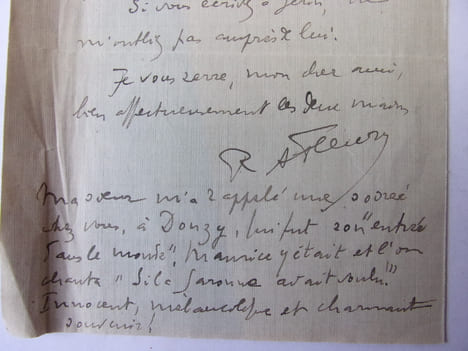 Si vous écrivez à Jenn, ne
m'oubliez pas auprès de lui.
Je vous serre, mon cher ami,
bien affectueusement les deux mains
R A Fleury
Ma sœur m'a rappelé une soirée
chez vous, à Donzy, qui fut son "entrée
dans le monde". Maurice y était et l'on
chanta "Si la Garonne avait voulu".
Innocent, mélancolique et charmant
souvenir!